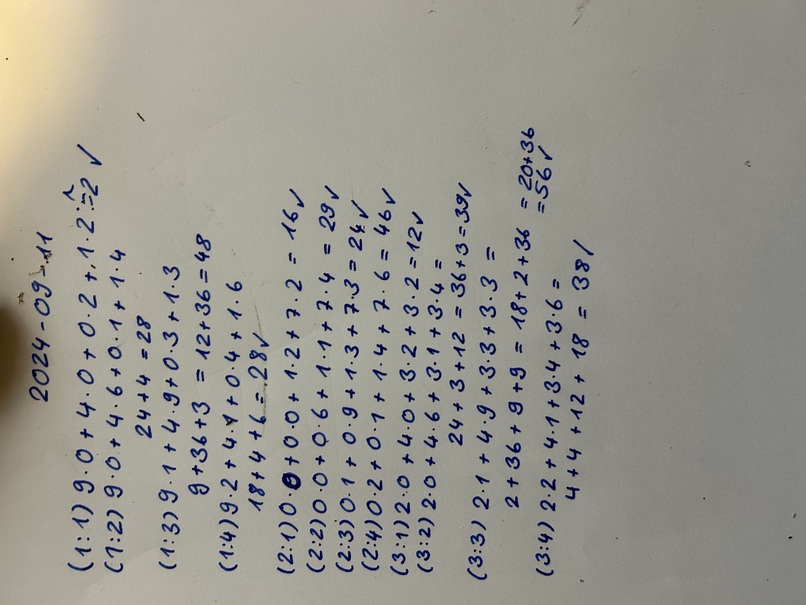 2024-09-11
(1:1) 9·0+4·0+0·2+1·2=2 ✓
(1:2) 9·0+4·6+0·1+1·4
24+4=28
(1:3) 9·1+4·9+0·3+1·3
9+36+3 = 12+36=48
(1:4) 9·2+4·1+0·4+1·6
18+4+6 = 28✓
(2:1) 0·0+0·0+1·2+7·2 = 16✓
(2:2) 0·0+0·6+1·1+7·4 = 29✓
(2:3) 0·1+0·9+1·3+7·3=24✓
(2:4) 0·2+0·1+1·4+7·6=46✓
(3:1) 2·0+4·0+3·2+3·2=12✓
(3:2) 2·0+4·6+3·1+3·4=
24+3+12=36+3=39✓
(3:3) 2·1+4·9+3·3+3·3 =
2+36+9+9 = 18+2+36 = 20+36
=56✓
(3:4) 2·2+4·1+3·4+3·6=
4+4+12+18 = 38✓